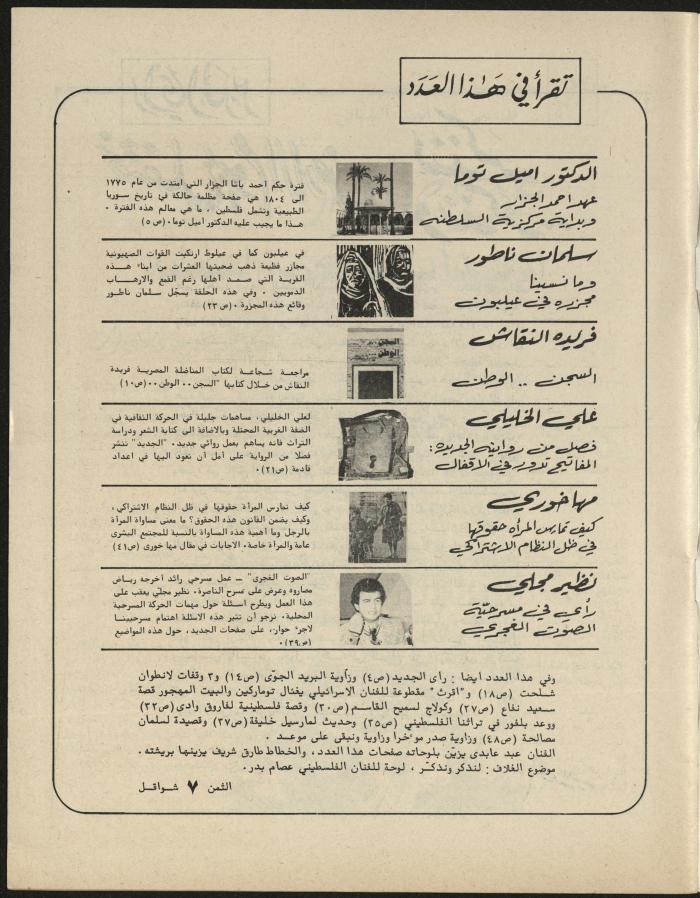 تقرأ في هذا العدد
الدكتور اميل توما
عهد احمد الجزار
وبداية مركزية السلطنه
فترة حكم احمد باشا الجزار التي امتدت من عام ١٧٧٥
الى ١٨٠٤ هي صفحة مظلمة حالكة في تاريخ سوريا
الطبيعية وتشمل فلسطين ، ما هي معالم هذه الفترة ٠
هذا ما يجيب عليه الدكتور اميل توما٠ (ص٥)
سلمان ناطور
وما نسينا
مجزره في عيلبون
في عيلبون كما في عيلوط ارتكبت القوات الصهيونية
مجازر فظيعة ذهب ضحيتها العشرات من ابناء هـــذه
القرية التي صمد أهلها رغم القمع والارهـــاب
الدمويين ٠ وفي هذه الحلقة يسجّل سلمان ناطور
وقائع هذه المجزرة ٠(ص ٢٣)
فريده النقاش
السجن .. الوطن
السجن ..
الوطن ..
مراجعة شجاعة لكتاب المناضلة المصرية فريدة
النقاش من خلال كتابها "السجن ٠٠ الوطن ٠٠(ص١٠)
علي الخليلي
فصل من روايته الجديده :
المفاتيح تدور في الاقفال
لعلي الخليلي، مساهمات جليلة في الحركة الثقافية في
الضفة الغربية المحتلة وبالاضافة الى كتابة الشعر ودراسة
التراث فانه يساهم بعمل روائي جديد٠ "الجديد" تنشر
فصلا من الرواية على أمل أن نعود اليها في اعداد
قادمة (ص٢١)٠
مها خوري
كيف تمارس المرأه حقوقها
في ظل النظام الاشتراكي
كيف تمارس المرأة حقوقها في ظل النظام الاشتراكي،
وكيف يضمن القانون هذه الحقوق؟ ما معنى مساواة المرأة
بالرجل وما أهمية هذه المساواة بالنسبة للمجتمع البشرى
عامة والمرأة خاصة٠ الاجابات في مقال مها خورى (ص٤١)
نظير مجلي
رأي في مسرحيّة
الصوت الغجري
"الصوت الغجرى" ــ عمل مسرحي رائد أخرجه ريـاض
مصاروه وعرض على مسرح الناصرة٠ نظير مجلي يعقب على
هذا العمل ويطرح أسئلة حول مهمات الحركة المسرحية
المحلية٠ نرجو أن تثير هذه الاسئلة اهتمام مسرحيينا
لاجراء حوار، على صفحات الجديد، حول هذه المواضيع
(ص٣٩)٠
وفي هذا العدد أيضا : رأى الجديد(ص٤) وزاوية البريد الجوّى (ص١٤) و٣ وقفات لانطوان
شلحت (ص١٨) و"اقرث" مقطوعة للفنان الاسرائيلي يغئال توماركين والبيت المهجور قصة
سعيد نفاع (ص٢٧) وكولاج لسميح القاسم (ص٣٠) وقصة فلسطينية لفاروق وادى(ص٣٢)
ووعد بلفور في تراثنا الفلسطيني (ص٣٥) وحديث لمارسيل خليفة(ص٣٧) وقصيدة لسلمان
مصالحة (ص٤٨) وزاوية صدر مؤخرا وزاوية ونبقى على موعـد ٠
الفنان عبد عابدى يزيّن بلوحاته صفحات هذا العدد، والخطاط طارق شريف يزينها بريشته ٠
موضوع الغلاف : لنذكر ونذكّر ، لوحة للفنان الفلسطيني عصام بدر٠
الثمن ٧ شواقـل